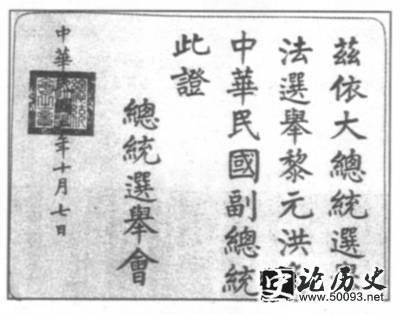 茲依大總統選舉
法選舉黎元洪
中華民國副總統
此證
總統選舉會
中華年十月七日
论历史
www.50093.net